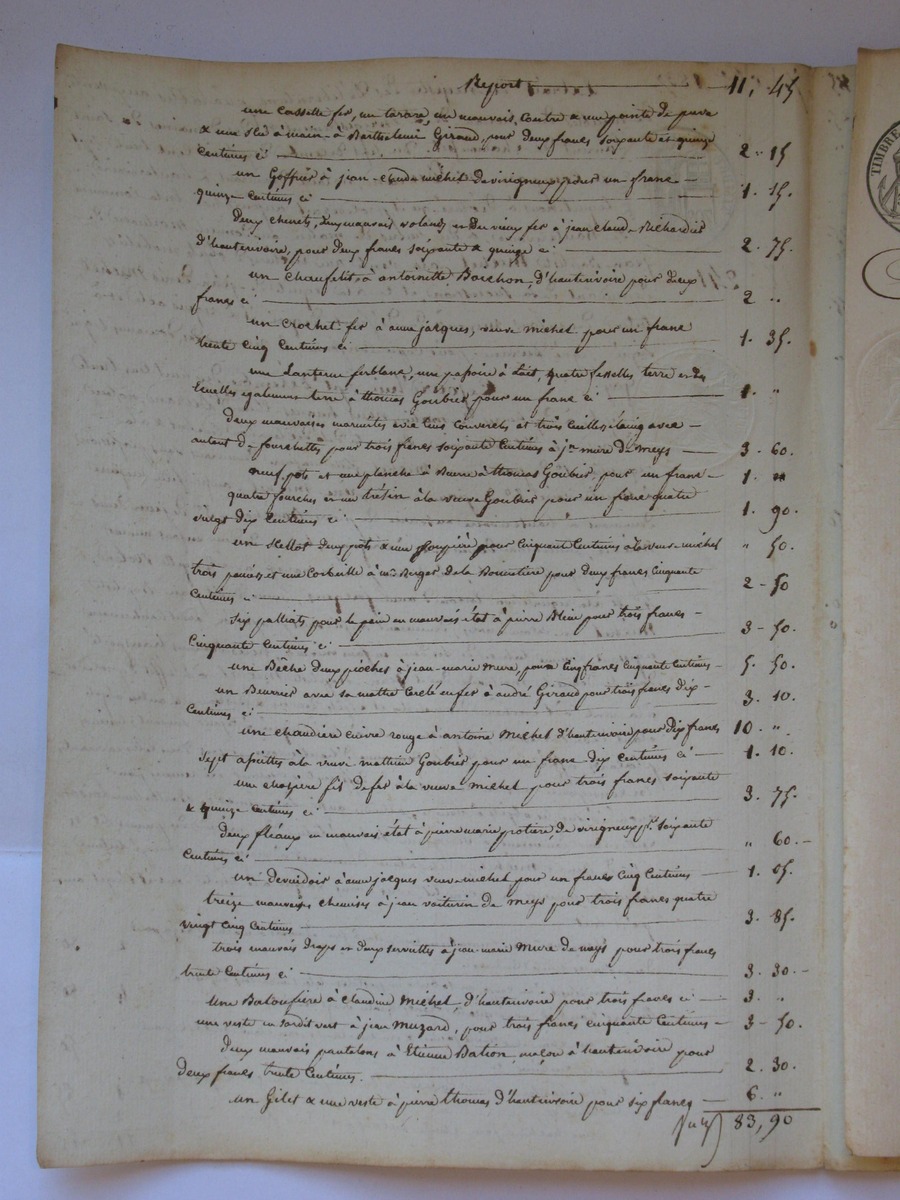 Report 11, 45
une Casse fer, un tarare, un mauvais Coutre & une pointe de
& une Scie à main à Barthelemi Giraud, pour deux francs soixante et quinze
Centimes ci 2 - 15
un Goffrier à jean claude michel de virigneux pour un franc
quinze Centimes ci 1. 15.
Deux chenets, deux mauvais volants et du vieux fer à jean claude Richardier
d'hauterivoire, pour deux francs soixante & quinze ci 2. 75.
un chaufelit à antoinette Boichon, d'hauterivoire pour deux
francs ci 2 "
un Crochet fer à anne jacques, veuve michel pour un franc
trente Cinq Centimes ci 1. 35.
une Lanterne ferblanc, une passoire à Lait, quatre fesselles terre et des
écuelles également terre à thomas Goubier pour un franc ci 1. "
deux mauvaises marmites avec leurs Couvercles et trois Cuillers étaing avec
autant de fourchettes pour trois francs soixante Centimes à jn mure de meys 3. 60.
neuf pots et une planche à Beurre à thomas Goubier, pour un franc 1. "
quatre fourches et un trésin à la veuve Goubier pour un franc quatre
vingt dix Centimes ci 1. 90.
un deux pots & une soupière pour Cinquante Centimes à la veuve michel " 50.
trois paniers et une Corbeille à me Berger de la pour deux francs Cinquante
Centimes ci 2 - 50
six palliats pour le pain en mauvais état à pierre Blein pour trois francs
Cinquante Centimes ci 3 - 50.
une Bêche deux pioches à jean marie mure, pour Cinq francs Cinquante Centimes 5. 50.
un Beurrier avec sa Cerclé en fer à andré Giraud pour trois francs dix
Centimes ci 3. 10.
une chaudière Cuivre rouge à antoine michel d'hauterivoire pour dix francs 10 "
sept assiettes à la veuve mathieu Goubier pour un franc dix Centimes ci 1. 10.
une chazière fil de fer à la veuve michel pour trois francs soixante
& quinze Centimes ci 3. 75.
deux fléaux en mauvais état à pierre marie potière de virigneux pr. soixante
Centimes ci " 60.
un devidoir à anne jacques veuve michel pour un franc Cinq Centimes 1. 05.
treize mauvaises chemises à jean voiturin de meys pour trois francs quatre
vingt Cinq Centimes 3. 85.
trois mauvais draps et deux serviettes à jean marie mure de meys pour trois francs
trente Centimes ci 3. 30.
une à Claudine michel, d'hauterivoire pour trois francs ci 3. "
une veste en sardit vert à jean muzard, pour trois francs cinquante Centimes 3 - 50.
deux mauvais pantalons à Etienne Bation, maçon à hauterivoire pour
deux francs trente Centimes. 2. 30.
un Gilet & une veste à pierre thomas d'hauterivoire pour six francs 6. "
83, 90
TIMBRE